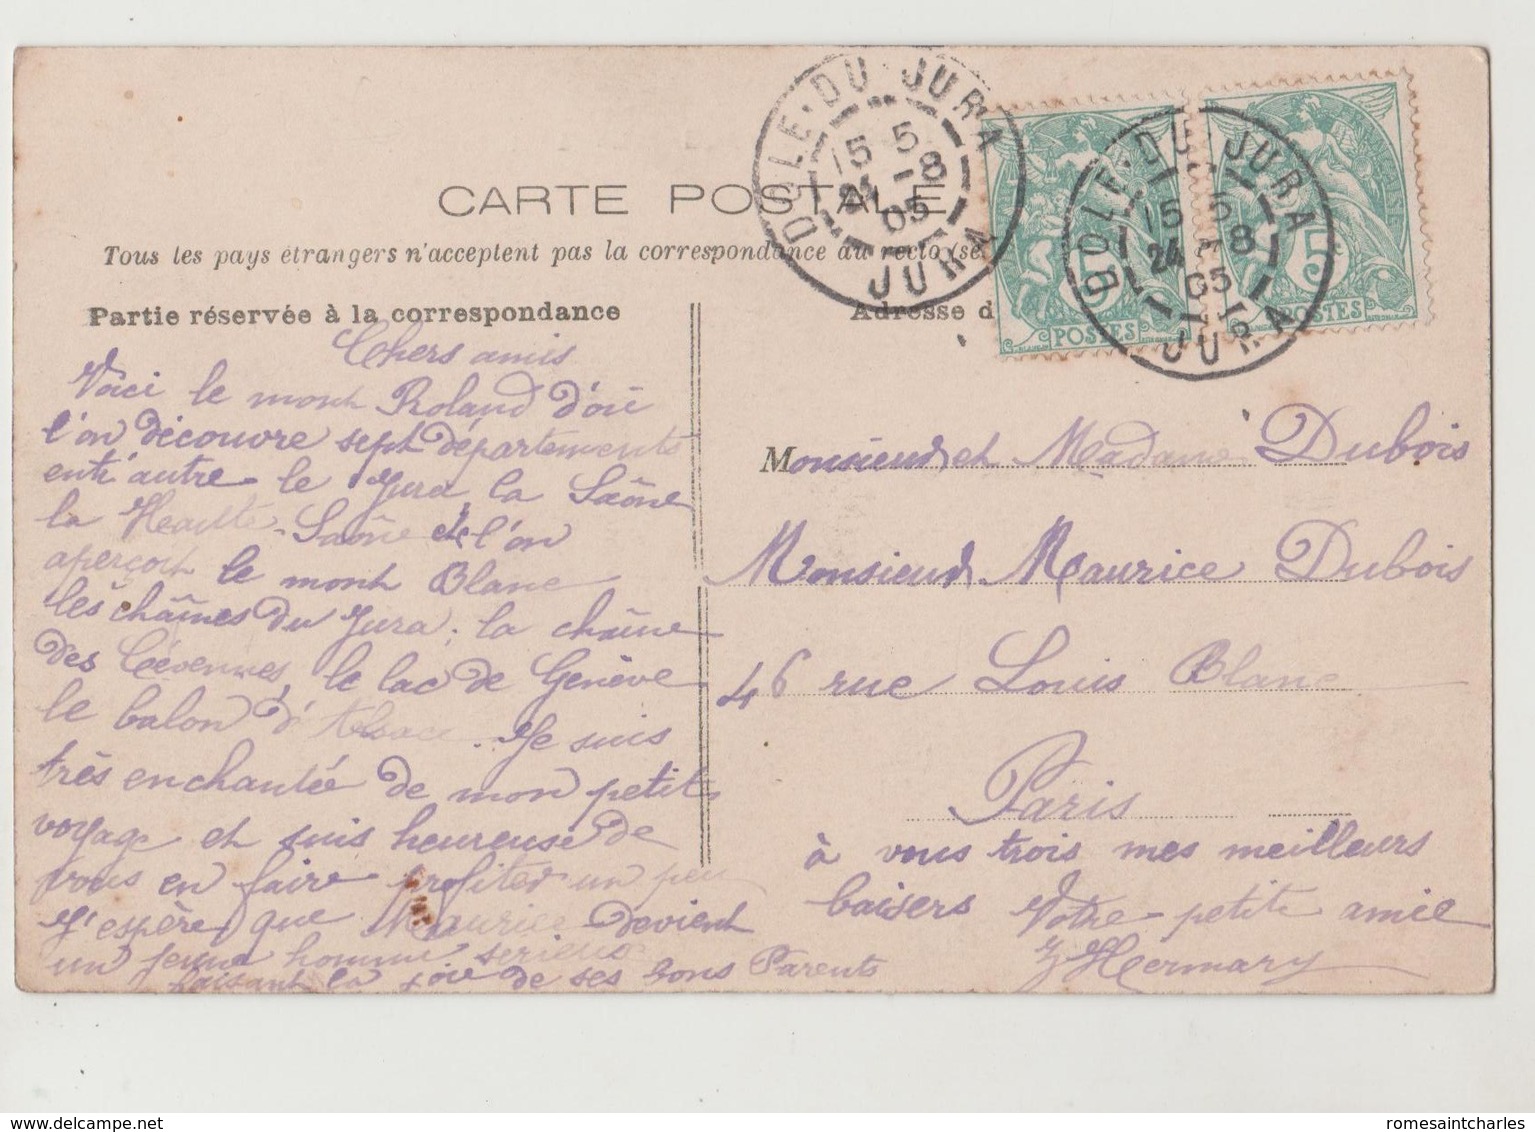 CARTE POSTALE
Tous les pays étrangers n'acceptent pas la correspondance au recto (se
Partie réservée à la correspondance
Adresse d
DOLE-DU-JURA
15 5
24 -8
05
JURA
DOLE-DU-JURA
15 5
24 -8
05
JURA
5
POSTES
5
POSTES
Chers amis
Voici le mont Roland d'où
l'on découvre sept départements
entr'autre le Jura, la Saône
la Heaute-Saône et l'on
aperçoit le mont Blanc
les chaînes du Jura, la chaîne
des Cévennes, le lac de Genève
le balon d'Alsace. Je suis
très enchantée de mon petit
voyage et suis heureuse de
vous en faire profiter un peu
J'espère que Maurice devient
un jeune homme serieux
faisant la joie de ses bons Parents
Monsieur et Madame Dubois
Monsieur Maurice Dubois
46 rue Louis Blanc
Paris
à vous trois mes meilleurs
baisers Votre petite amie
Hermary
delcampe.net
romesaintcharles